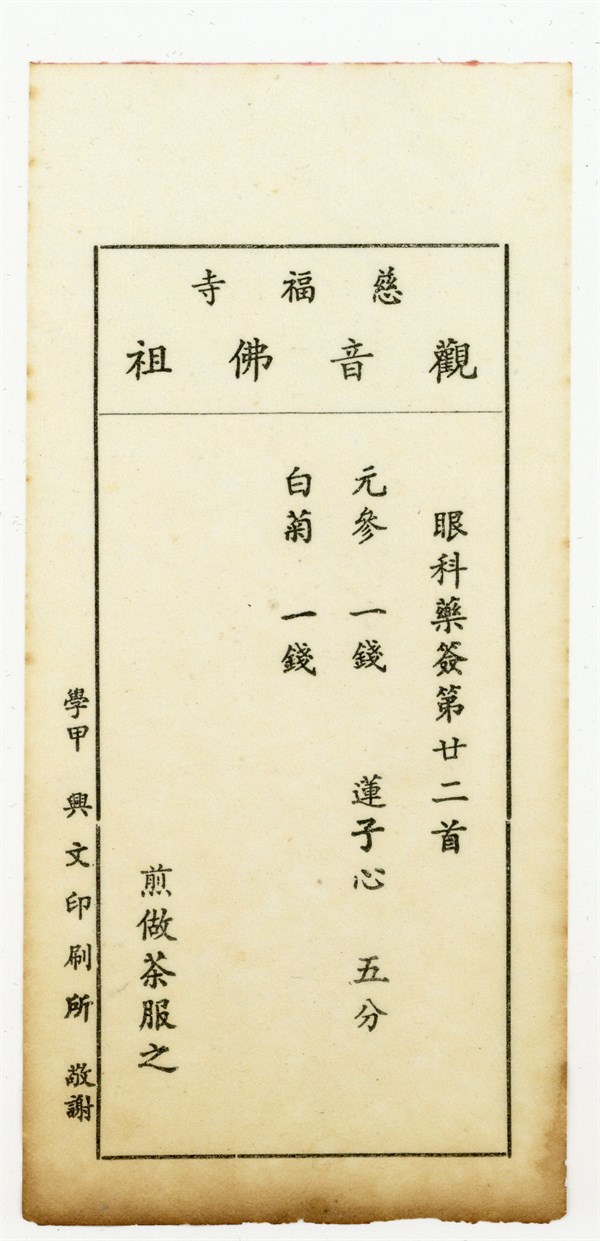 慈福寺
觀音佛祖
眼科藥簽第廿二首
元參 一錢 蓮子心 五分
白菊 一錢
煎做茶服之
學甲 興文印刷所 敬謝